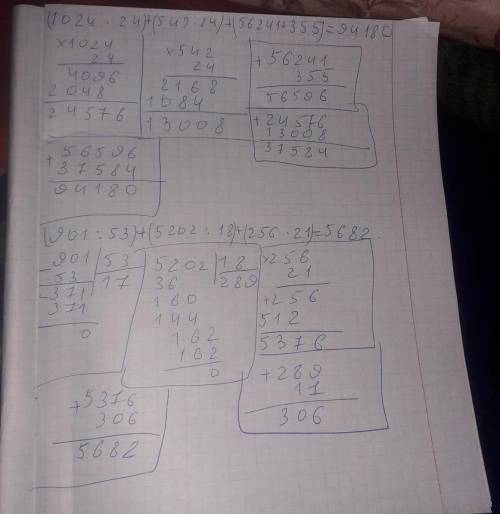 (1024 · 24)+(542·24)+(56241+355)=94180
×1024
24
4096
2048
24576
×542
24
2168
1084
13008
+56241
355
56596
+24576
13008
37584
+56596
37584
94180
(901 : 53)+(5202 : 18)+(256 · 21)=5682.
-901 | 53
53 | 17
371
371
0
5202 | 18
36 | 289
160
144
162
162
0
×256
21
+256
512
5376
+289
17
306
+5376
306
5682